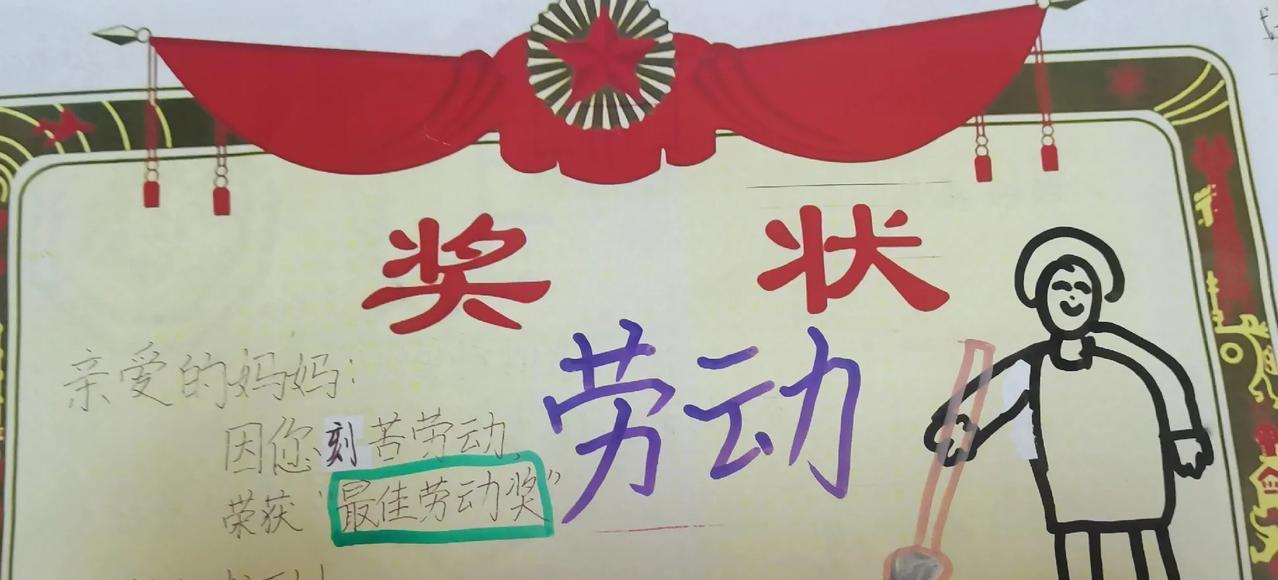 奖状
劳动
亲爱的妈妈：
因你刻苦劳动，
荣获“最佳劳动奖”